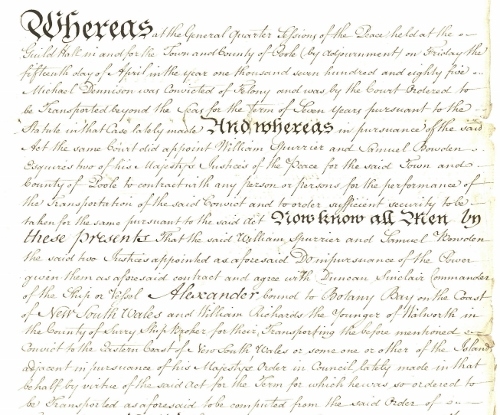 Whereas at the General Quarter Sessions of the Peace held at the
Guild Hall in and for the Town and County of Poole (by adjournment) on Friday the
fifteenth day of April in the year one thousand seven hundred and eighty five
Michael Dennison was Convicted of Felony and was by the Court Ordered to
be Transported beyond the Seas for the term of Seven Years pursuant to the
Statute in that Case lately made And whereas in pursuance of the said
Act the same Court did appoint William Spurrier and Samuel Bowden
Esquires two of his Majesty's Justices of the Peace for the said Town and
County of Poole to contract with any person or persons for the performance of
the Transportation of the said Convict and to order sufficient security to be
taken for the same pursuant to the said Act Now know all Men by
these presents That the said William Spurrier and Samuel Bowden
the said two Justices appointed as aforesaid Do in pursuance of the Power
given them as aforesaid contract and agree with Duncan Sinclair Commander
of the Ship or Vessel Alexander bound to Botany Bay on the Coast
of New South Wales and William Richards the Younger of Walworth in
the County of Surry Ship Broker for their Transporting the before mentioned
Convict to the Eastern Coast of New South Wales or some one or other of the Islands
adjacent in pursuance of his Majestys Order in Council lately made in that
behalf by virtue of the said Act for the Term for which he was so ordered to
be Transported as aforesaid to be computed from the said Order of